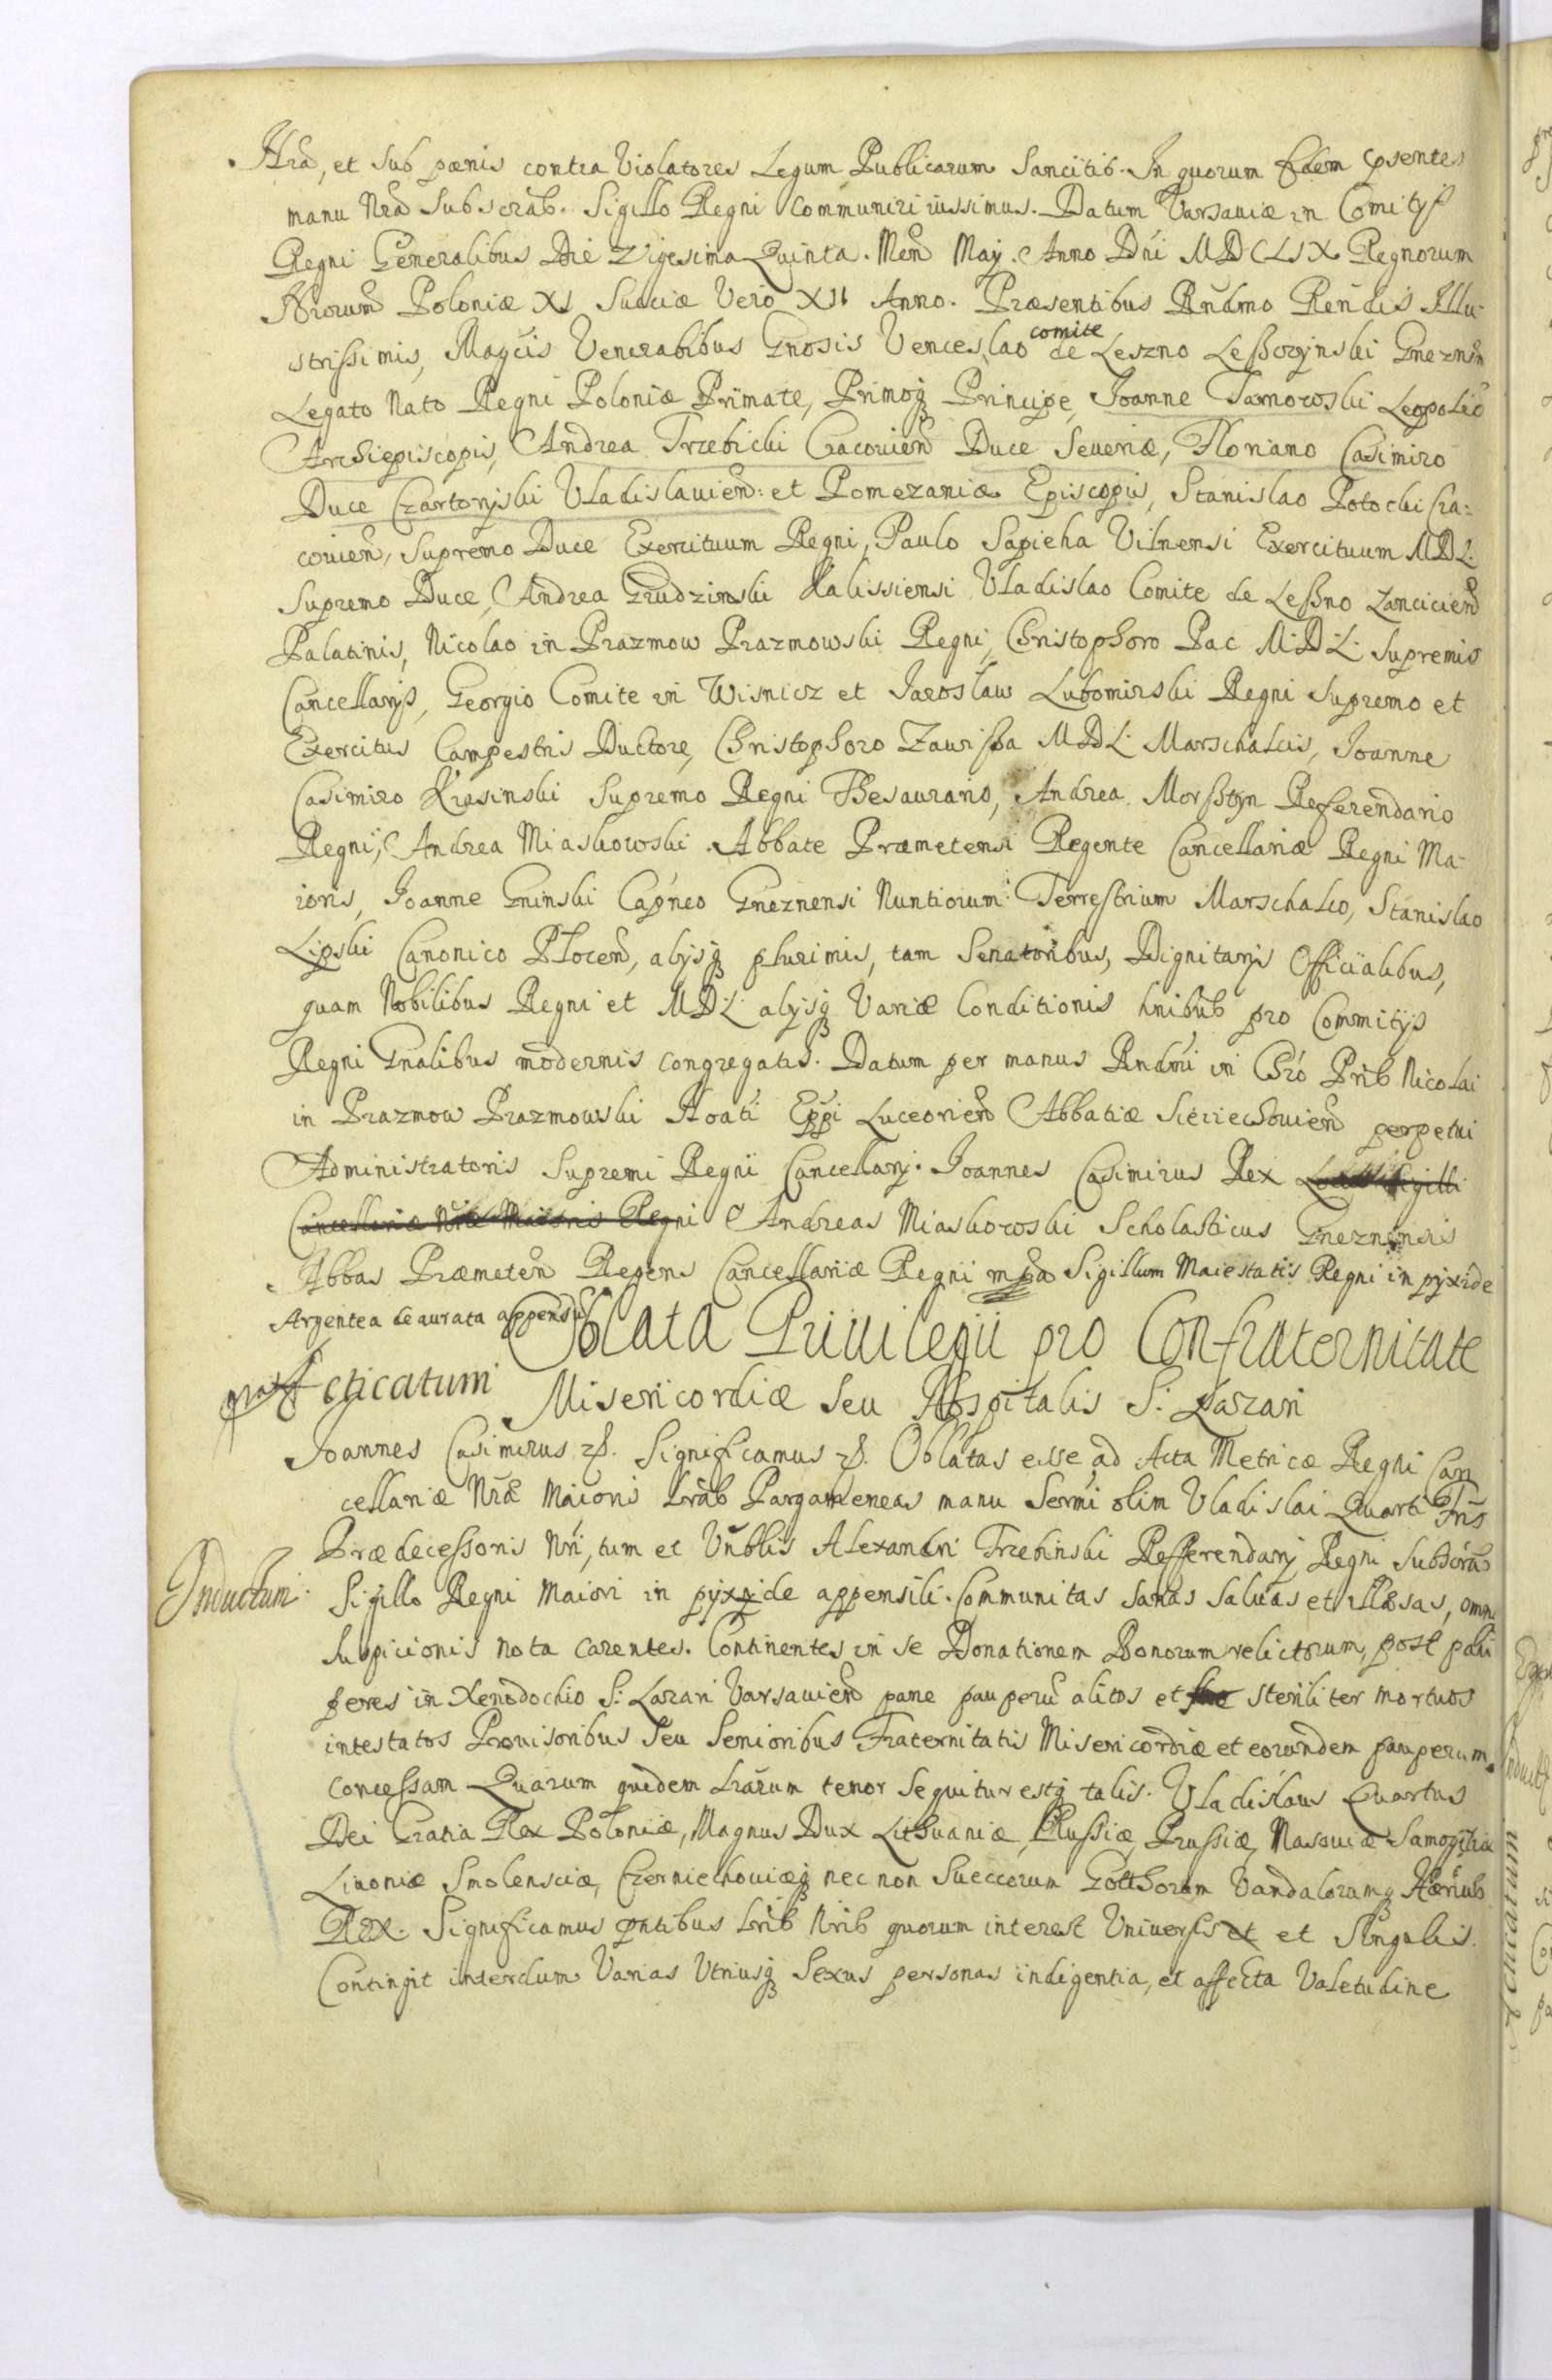 Nra, et sub pænis contra Violatores Legum Publicarum Sancitis. In quorum fidem pñsentes
manu Nra Subscrab. Sigillo Regni Communiri iussimus. Datum Varsaviæ in Comitys
Regni Generalibus Die Vigesima Quinta. Men Maij. Anno Dni MDCLIX Regnorum
Nrorum Poloniæ XI Sueciæ Vero XII Anno. Præsentibus Rndmo Rendis Illu-
strissimis, Magcis Venerabibus Gnosis Venceslao comite de Leszno Leszczynski Gneznen
Legato Nato Regni Poloniæ Primate, Primoq Principe, Joanne Tarnowski Leopolien
Archiepiscopis, Andrea Trzebicki Cracovien Duce Severiæ, Floriano Casimiro
Duce Czartoryski Vladislavien: et Pomezaniæ Episcopis, Stanislao Potocki Cra:
covien, Supremo Duce Exercituum Regni, Paulo Sapieha Vilnensi Exercituum MDL.
Supremo Duce, Andrea Grudzinski Kalissiensi Vladislao Comite de Leszno Lancicien
Palatinis, Nicolao in Prazmow Prazmowski Regni, Christophoro Pac M.D.L. Supremis
Cancellarys, Georgio Comite in Wisnicz et Jaroslaw Lubomirski Regni Supremo et
Exercitus Campestris Ductore, Christophoro Zawisza MDL. Marschalcis, Joanne
Casimiro Krasinski Supremo Regni Thesaurario, Andrea Morsztyn Referendario
Regni, Andrea Miaskowski Abbate Præmetensi Regente Cancellariæ Regni Ma-
ioris, Joanne Gninski Capneo Gneznensi Nuntiorum Terrestrium Marschalco, Stanislao
Lipski Canonico Plocen, alysq plurimis, tam Senatoribus, Dignitarys Officialibus,
quam Nobilibus Regni et MDL alysq Variæ Conditionis hnibus pro Commitys
Regni Gnalibus modernis congregatis. Datum per manus Rndmi in Chro Pris Nicolai
in Prazmow Prazmowski Noati Eppi Luceorien Abbatiæ Sieciechovien perpetui
Administratoris Supremi Regni Cancellarj. Joannes Casimirus Rex Locus Sigilli
Cancellariæ Nræ Maioris Regni Andreas Miaskowski Scholasticus Gneznensis
Abbas Præmeten Regens Cancellariæ Regni mpa Sigillum Maiestatis Regni in pyxide
Argentea deaurata appensu
Oblata Privilegii pro Confraternitate
Misericordiæ Seu Hospitalis S: Lazari
Joannes Casimirus &. Significamus &. Oblatas esse ad Acta Metricæ Regni Can
cellariæ Nræ Maioris Lrab Pargameneas manu Sermi olim Vladislai Quarti Fris
Prædecessoris Nri, tum et Vnblis Alexandri Trzebinski Refferendarj Regni Subscrab
Inductum.
Sigillo Regni Maiori in pyxide appensili Communitas Sanas Salvas et illæsas, omni
Suspicionis nota carentes. Continentes in se Donationem Bonorum relictorum, post pau
peres in Xenodochio S: Lazari Varsavien pane pauperu alitos et steriliter mortuos
intestatos Provisoribus Seu Senioribus Fraternitatis Misericordiæ et eorundem pauperum
Concessam Quarum quidem Lrarum tenor Sequitur estq talis. Vladislaus Quartus
Dei Gratia Rex Poloniæ, Magnus Dux Lithuaniæ, Russiæ, Prussiæ, Masoviæ Samogitiæ
Livoniæ Smolensciæ, Czerniechoviæq nec non Sueccorum Gotthorum Vandalorumq Hærius
Rex. Significamus pntibus Lrib Nrib quorum interest Universis et et Singulis.
Contingit interdum Varias Utriusq Sexus personas indigentia, et affecta Valetudine